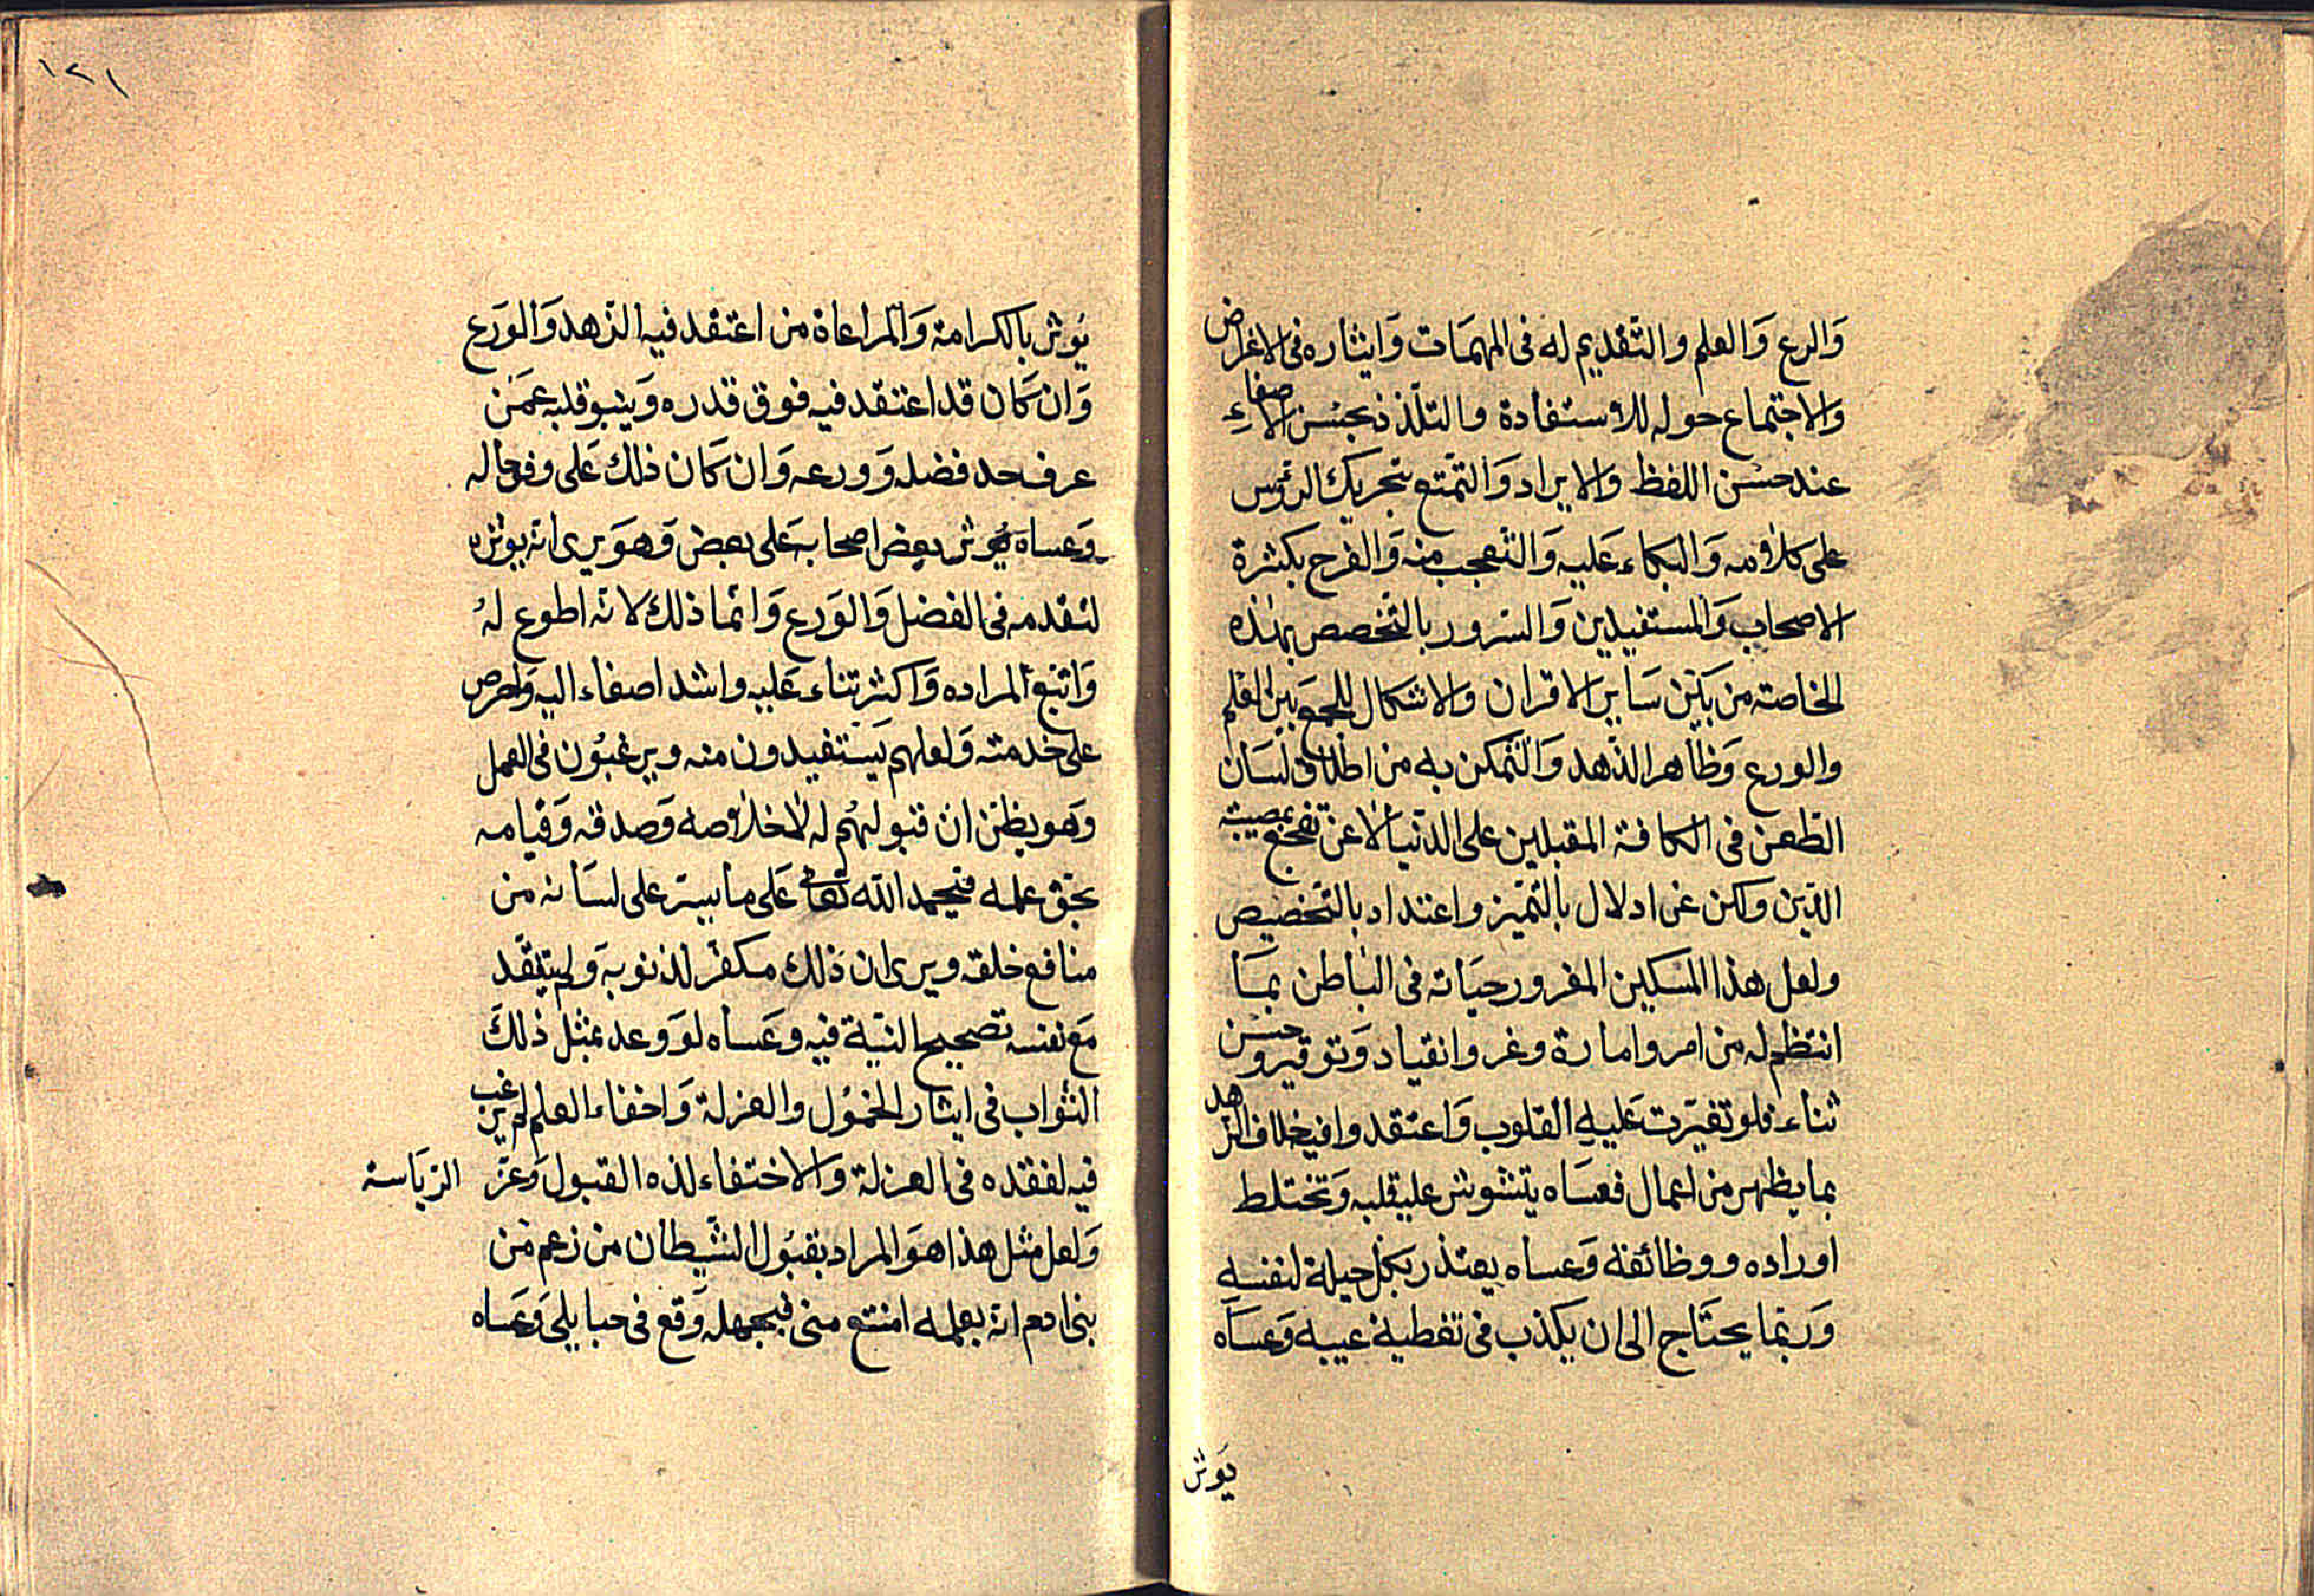 وَالورع وَالعلم والتّقديم له فى المهمَات وَايثاره فى الاغراض
والاجتماع حوله للاستفادة والتلذذ بحسن الاصغاء
عند حسْن اللفظ والايراد وَالتمتّع بتحريك الرؤس
على كلامه وَالبكاء عَليه وَالتعجب منه وَالفرح بكثرة
الاصحاب وَالمستفيدين وَالسرور بالتخصص بهذه
الخاصة من بَيْن سَاير الاقران والاشكال للجمع بين العلم
والورع وَظاهر الذهد وَالتمكن به من اطلاق لسَان
الطعن فى الكافة المقبلين على الدّنيا لا عن تفجع بمصيبة
الدّين ولكن عن ادلال بالتميّز واعتداد بالتخصيص
ولعل هذا المسكين المغرور حيَاته فى البَاطن بمَا
انتظم له من امر وامارة وعز وانقياد وَتوقير وحسْن
ثناء فلو تغيّرت عَليهِ القلوب وَاعتقدوا فيه خلاف الزهد
بما يظهر من اعمال فعسَاه يتشوش عليه قلبه وَتختلط
اوراده ووظائفه وَعساه يعتذر بكل حيلة لنفسهِ
وَربّما يحتَاج الى ان يكذب فى تغطية عيبه وَعسَاه
يَوثر
١٢١
يُوثر بالكرامة وَالمراعاة من اعتقد فيه الزّهد وَالوَرع
وَان كَان قد اعتقد فيه فوق قدره وَينبو قلبه عمَن
عرف حد فضله وَورعه وَان كَان ذلك عَلى وفق حاله
وَعساه يُوثر بعض اصحابه عَلى بعض وَهوَ يرى انه يوثره
لتقدمه فى الفضل وَالوَرع وَانّما ذلك لانّه اطوع لهُ
وَاتبع لمراده وَاكثر ثناء عَليه واشد اصغاء اليه وَاحرص
على خدمته وَلعلهم يَستفيدون منه ويرغبُون فى العمل
وَهو يظن ان قبولهُم له لاخلاصه وَصدقه وَقيامه
بحق علمه فيحمد الله تعالى عَلى ما يسّر على لسَانه من
منافع خلقه ويرى ان ذلك مكفّر لذنوبه وَلم يتفقّد
مَع نفسه تصحيح النيّة فيه وعَساه لوَ وعد بمثل ذلكَ
الثواب فى ايثار الخمُول والعزلة وَاخفاء العلم لم يرغب
فيه لفقده فى العزلة والاختفاء لذه القبول وَعزّ الريَاسة
وَلعل مثل هذا هوَ المراد بقبُول الشيطان من زعم مَن
بنى ادم انه بعلمه امتنع منى فبجهله وَقع فى حبايلى وَعَساه